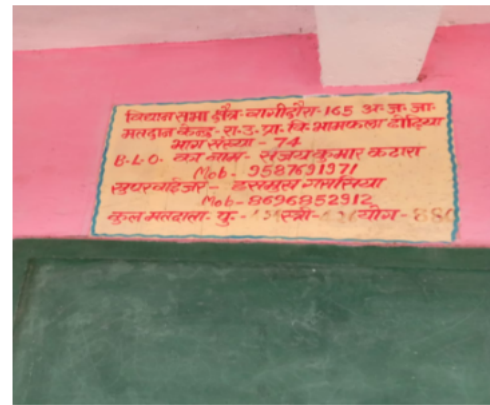 विधान सभा क्षैत्र-बागीदौरा-165 अ.ज.जा.
मतदान केन्द्र-रा.उ.प्रा.वि.भामफला टीटिया
भाग संख्या - 74
B.L.O. का नाम - संजय कुमार कटारा
Mob - 9587691971
सुपरवाईजर -
Mob - 8696852912
कुल मतदाता- पु.- स्त्री- योग-